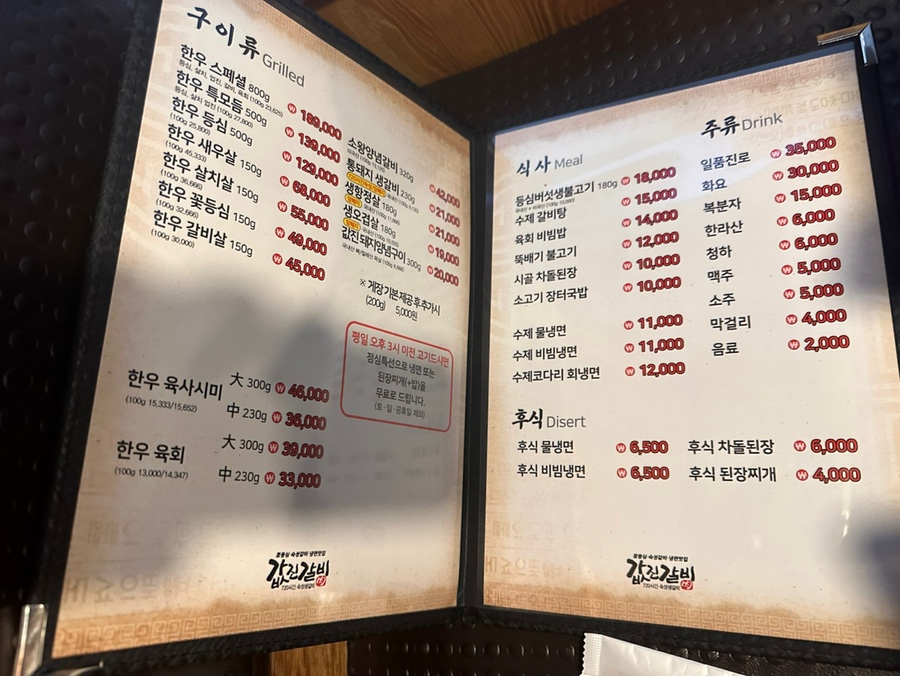 구이류 Grilled
한우 스페셜 800g 189,000
등심, 살치, 업진, 갈비, 육회 (100g 23,625)
한우 특모듬 500g 139,000
등심, 살치 업진 (100g 27,800)
한우 등심 500g 129,000
(100g 25,800)
한우 새우살 150g 68,000
(100g 45,333)
한우 살치살 150g 55,000
(100g 36,666)
한우 꽃등심 150g 49,000
(100g 32,666)
한우 갈비살 150g 45,000
(100g 30,000)
소왕양념갈비 320g 42,000
통돼지 생갈비 230g 21,000
생항정살 180g 21,000
생오겹살 180g 19,000
값진돼지양념구이 300g 20,000
※ 게장 기본제공 후 추가시
(200g) 5,000원
평일 오후 3시 이전 고기드시면
점심특선으로 냉면 또는
된장찌개(+밥)을
무료로 드립니다.
(토·일·공휴일 제외)
한우 육사시미 大 300g 46,000
(100g 15,333/15,652) 中 230g 36,000
한우 육회 大 300g 39,000
(100g 13,000/14,347) 中 230g 33,000
꽃등심·숙성갈비·냉면맛집
값진갈비
720시간 숙성생갈비
식사 Meal
등심버섯생불고기 180g 18,000
수제 갈비탕 15,000
육회 비빔밥 14,000
뚝배기 불고기 12,000
시골 차돌된장 10,000
소고기 장터국밥 10,000
수제 물냉면 11,000
수제 비빔냉면 11,000
수제코다리 회냉면 12,000
주류 Drink
일품진로 35,000
화요 30,000
복분자 15,000
한라산 6,000
청하 6,000
맥주 5,000
소주 5,000
막걸리 4,000
음료 2,000
후식 Disert
후식 물냉면 6,500
후식 비빔냉면 6,500
후식 차돌된장 6,000
후식 된장찌개 4,000
꽃등심·숙성갈비·냉면맛집
값진갈비
720시간 숙성생갈비